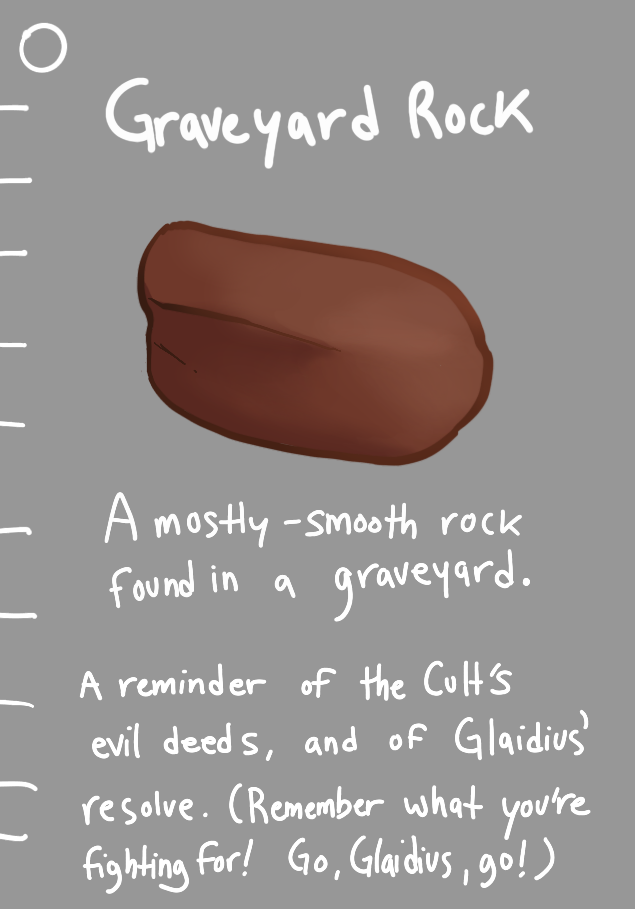 Graveyard Rock
A mostly-smooth rock
found in a graveyard.
A reminder of the Cult's
evil deeds, and of Glaidius'
resolve. (Remember what you're
fighting for! Go, Glaidius, go!)